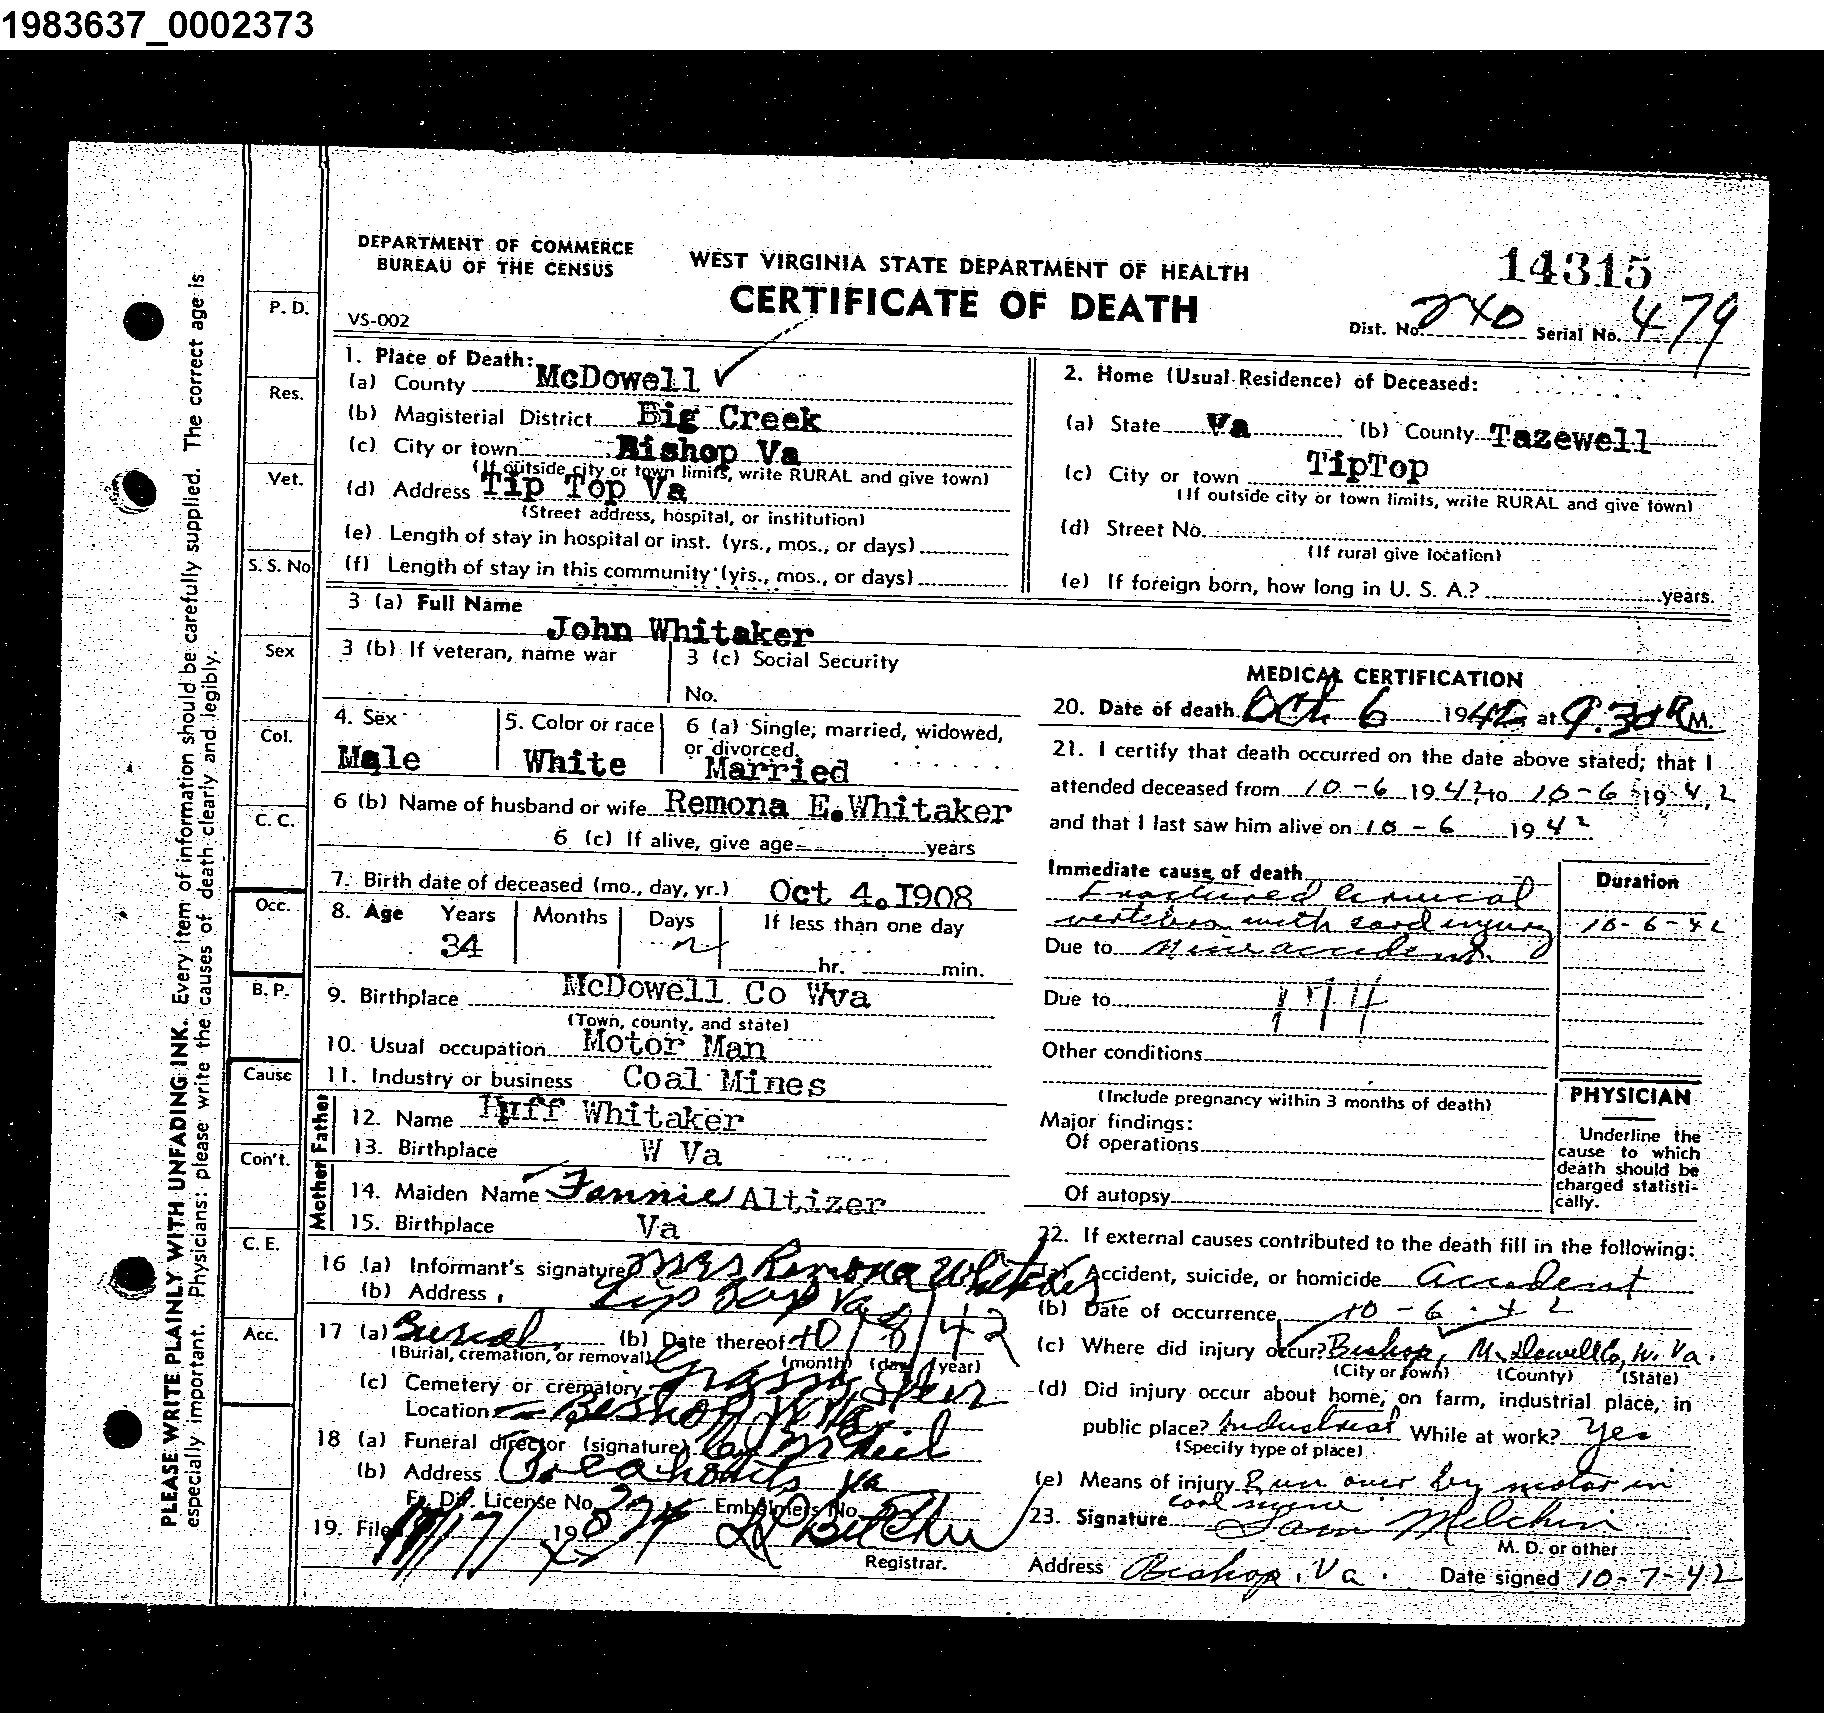 1983637_0002373
DEPARTMENT OF COMMERCE
BUREAU OF THE CENSUS
WEST VIRGINIA STATE DEPARTMENT OF HEALTH
CERTIFICATE OF DEATH
14315
VS-002
Dist. No. 240 Serial No. 479
PLEASE WRITE PLAINLY WITH UNFADING INK. Every item of information should be carefully supplied. The correct age is
especially important. Physicians: please write the causes of death clearly and legibly.
P. D.
Res.
Vet.
S. S. No
Sex
Col.
C. C.
Occ.
B. P.
Cause
Con't.
C. E.
Acc.
1. Place of Death:
(a) County McDowell
(b) Magisterial District Big Creek
(c) City or town Bishop Va
(If outside city or town limits, write RURAL and give town)
(d) Address Tip Top Va
(Street address, hospital, or institution)
(e) Length of stay in hospital or inst. (yrs., mos., or days)
(f) Length of stay in this community (yrs., mos., or days)
2. Home (Usual Residence) of Deceased:
(a) State Va (b) County Tazewell
(c) City or town TipTop
(If outside city or town limits, write RURAL and give town)
(d) Street No.
(If rural give location)
(e) If foreign born, how long in U. S. A.? years.
3 (a) Full Name
John Whitaker
3 (b) If veteran, name war
3 (c) Social Security
No.
4. Sex
Male
5. Color or race
White
6 (a) Single, married, widowed,
or divorced.
Married
6 (b) Name of husband or wife Remona E.Whitaker
6 (c) If alive, give age years
7. Birth date of deceased (mo., day, yr.) Oct 4.1908
8. Age Years Months Days If less than one day
34
hr. min.
9. Birthplace McDowell Co Wva
(Town, county, and state)
10. Usual occupation Motor Man
11. Industry or business Coal Mines
Father
12. Name Huff Whitaker
13. Birthplace W Va
Mother
14. Maiden Name Fannie Altizer
15. Birthplace Va
16 (a) Informant's signature Mrs Remona Whitaker
(b) Address Tip Top Va
17 (a) Burial (b) Date thereof 10/8/42
(Burial, cremation, or removal) (month) (day) (year)
(c) Cemetery or crematory Grassy Spur
Location Bishop W Va
18 (a) Funeral director (signature)
(b) Address Pocahontas Va
Fr. Dir. License No. Embalmers No.
19. Filed 19
Registrar.
MEDICAL CERTIFICATION
20. Date of death Oct 6 1942 at 9:30 M.
21. I certify that death occurred on the date above stated; that I
attended deceased from 10-6 1942, to 10-6 1942
and that I last saw him alive on 10-6 1942
Immediate cause of death
Fractured cervical
vertebra with cord injury
Duration
10-6-42
Due to Mine accident.
Due to
174
Other conditions
(Include pregnancy within 3 months of death)
Major findings:
Of operations
Of autopsy
PHYSICIAN
Underline the
cause to which
death should be
charged statisti-
cally.
22. If external causes contributed to the death fill in the following:
Accident, suicide, or homicide Accident
(b) Date of occurrence 10-6-42
(c) Where did injury occur? Bishop, McDowell Co, W. Va.
(City or town) (County) (State)
(d) Did injury occur about home, on farm, industrial place, in
public place? Industrial While at work? Yes
(Specify type of place)
(e) Means of injury Run over by motor in
coal mine
23. Signature Sam Milchin
M. D. or other
Address Bishop, Va. Date signed 10-7-42